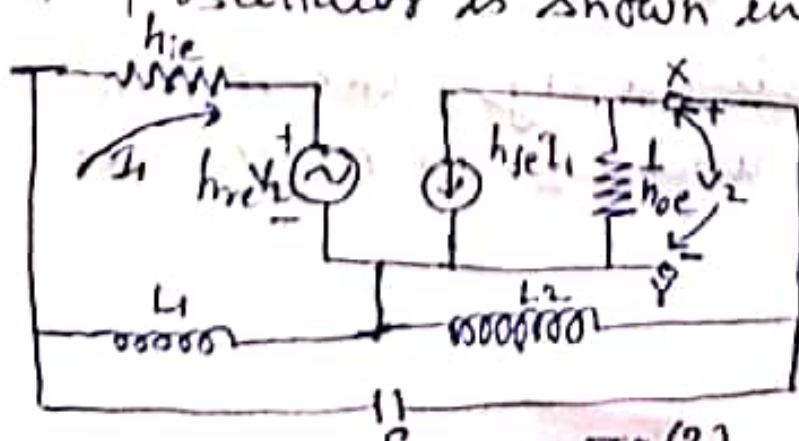 oscillator is shown in
hie
X
+
I1
+
hreV2
-
hfeI1
1
hoe
2
-
Y
L1
L2
C
(2)